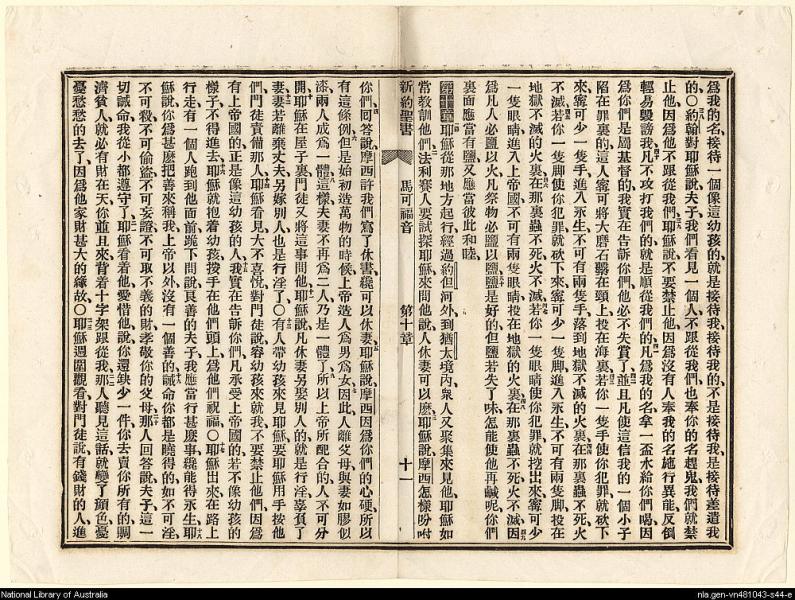 爲我的名、接待一個像這幼孩的、就是接待我、接待我的、不是接待我、是接待差遣我
的、○約翰對耶穌說、夫子、我們看見一個人、不跟從我們、也奉你的名趕鬼、我們就禁
止他、因爲他不跟從我們、耶穌說、不要禁止他、因爲沒有人奉我的名施行異能、反倒
輕易毀謗我、凡不攻打我們的、就是順從我們的、凡爲我的名、拿一盃水給你們喝、因
爲你們是屬基督的、我實在告訴你們、他必不失賞了、並且凡使這信我的一個小子
陷在罪裏的、這人寧可將大磨石繫在頸上、投在海裏、若你一隻手使你犯罪、就砍下
來、寧可少一隻手進入永生、不可有兩隻手、落到地獄不滅的火裏、在那裏蟲不死、火
不滅、若你一隻脚使你犯罪、就砍下來、寧可少一隻脚進入永生、不可有兩隻脚、投在
地獄不滅的火裏、在那裏蟲不死、火不滅、若你一隻眼睛使你犯罪、就挖出來、寧可少
一隻眼睛進入上帝國、不可有兩隻眼睛、投在地獄的火裏、在那裏蟲不死、火不滅、因
爲凡人必鹽以火、凡祭物必鹽以鹽、鹽是好的、但鹽若失了味、怎能使他再鹹呢、你們
裏面應當有鹽、又應當彼此和睦、
第十章 耶穌從那地方起行、經過約但河外、到猶太境內、衆人又聚集來見他、耶穌如
常教訓他們、法利賽人要試探耶穌、來問他說、人休妻可以麽、耶穌說、摩西怎樣吩咐
新約聖書 馬可福音 第十章 十一
你們、回答說、摩西許我們寫了休書、纔可以休妻、耶穌說、摩西因爲你們的心硬、所以
有這條例、但是始初造萬物的時候、上帝造人、爲男爲女、因此人離父母與妻如膠似
漆、兩人成爲一體、這樣夫妻不再爲二人、乃是一體了、所以上帝所配合的、人不可分
開、耶穌在屋子裏、門徒又將這事問他、耶穌說、凡休妻另娶別人的、就是行淫、辜負了
妻、妻若離棄丈夫、另嫁別人、也是行淫了、○有人帶幼孩來見耶穌、要耶穌用手按他
們、門徒責備那人、耶穌看見、大不喜悅、對門徒說、容幼孩來就我、不要禁止他們、因爲
有上帝國的、正是像這幼孩的人、我實在告訴你們、凡承受上帝國的、若不像幼孩的
樣子、不得進去、耶穌就抱着幼孩、按手在他們頭上、爲他們祝福、○耶穌出來、在路上
行走、有一個人跑到他面前、跪下問說、良善的夫子、我應當行甚麽事、纔能得永生、耶
穌說、你爲甚麽把善來稱我、上帝以外、沒有一個善的、誡命你都是曉得的、如不可淫、
不可殺、不可偷盜、不可妄證、不可取不義的財、孝敬你的父母、那人回答說、夫子、這一
切誡命、我從小都遵守了、耶穌看着他、愛惜他、說、你還缺少一件、你去賣你所有的、賙
濟貧人、就必有財在天、你並且來背着十字架跟從我、那人聽見這話、就變了顏色、憂
憂愁愁的去了、因爲他家財甚大的緣故、○耶穌週圍觀看、對門徒說、有錢財的人、進
National Library of Australia
nla.gen-vn481043-s44-e